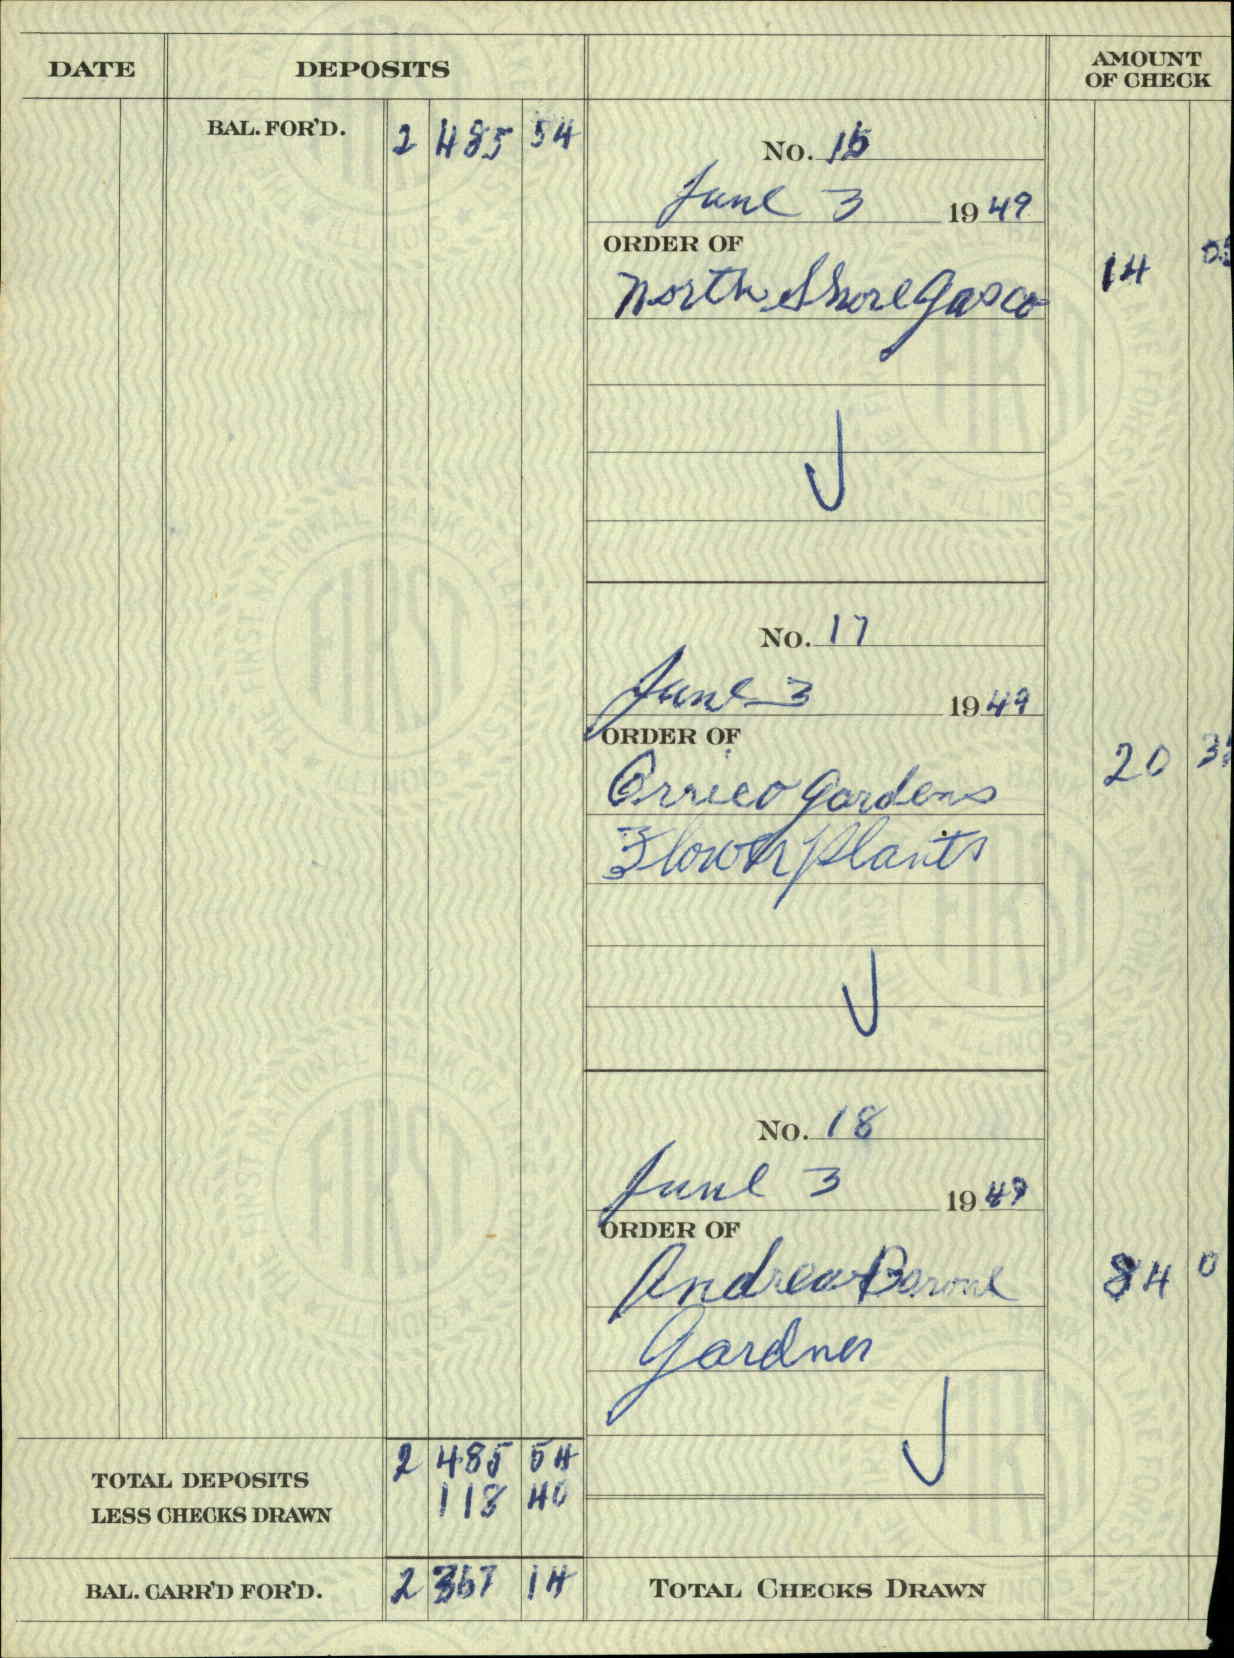 DATE DEPOSITS AMOUNT OF CHECK
BAL. FOR'D. 2 485 54
No. 16
June 3 1949
ORDER OF
North Shore Gas Co 14 05
No. 17
June 3 1949
ORDER OF
Orrico Gardens 20 35
Flower Plants
No. 18
June 3 1949
ORDER OF
Andrea Barone 84 0
Gardner
TOTAL DEPOSITS 2 485 54
LESS CHECKS DRAWN 118 40
BAL. CARR'D FOR'D. 2 367 14 TOTAL CHECKS DRAWN
FIRST NATIONAL BANK OF LAKE FOREST
ILLINOIS
FIRST